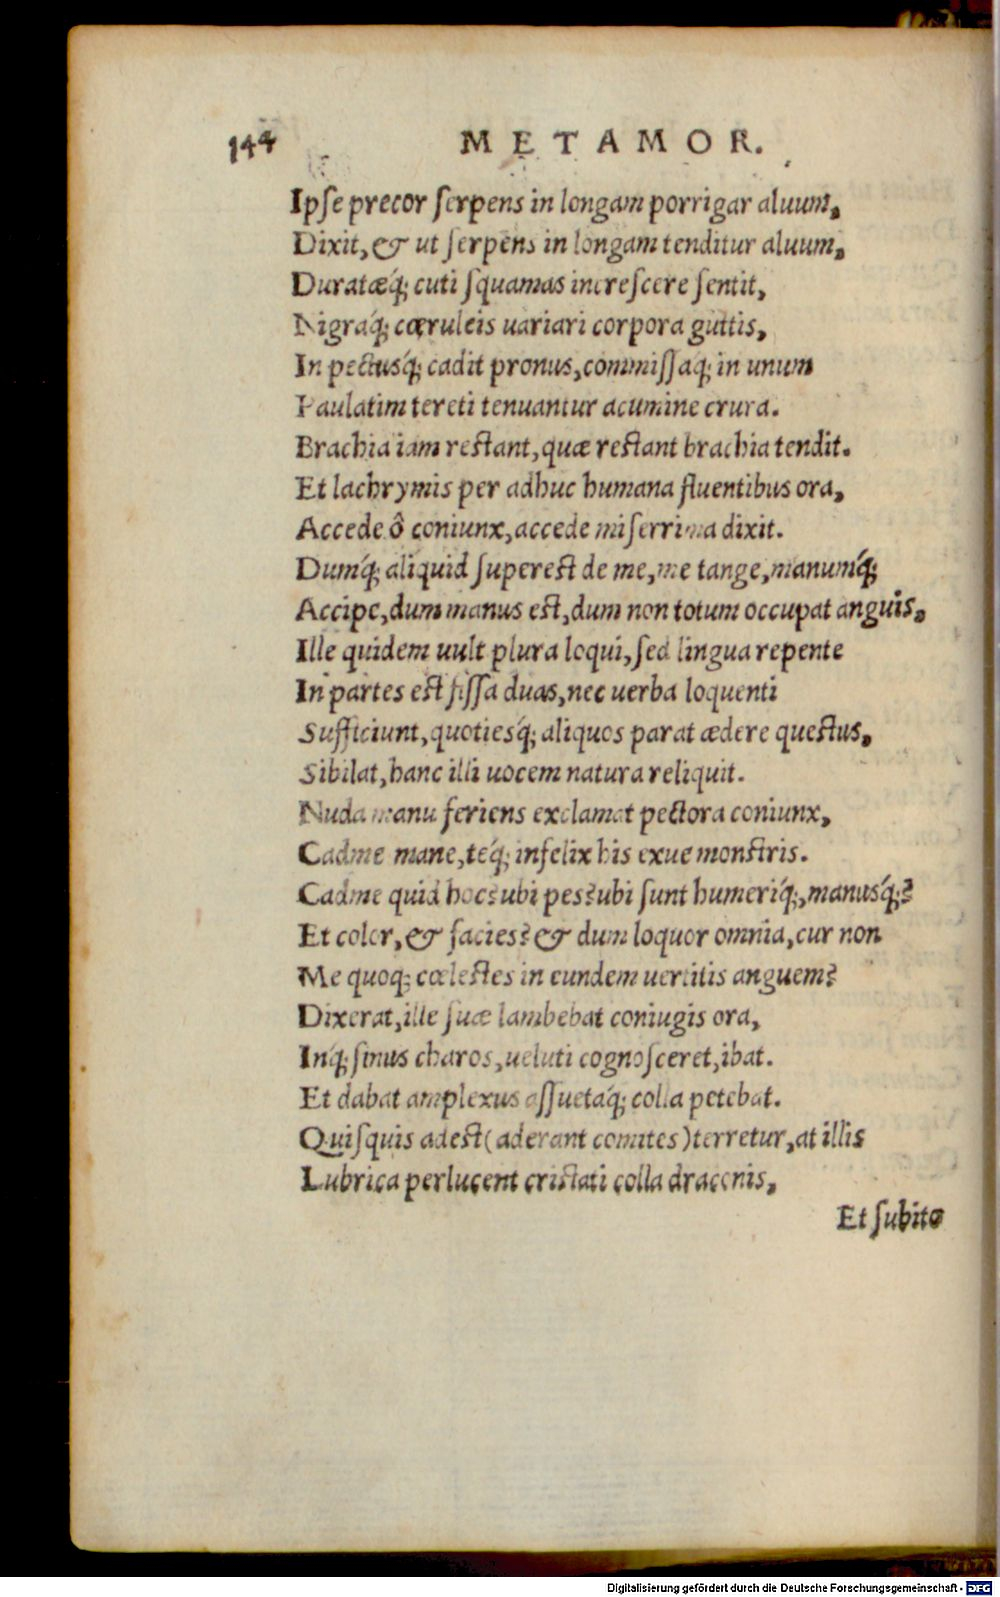 144 METAMOR.
Ipſe precor ſerpens in longam porrigar aluum,
Dixit, & ut ſerpens in longam tenditur aluum,
Duratæq́; cuti ſquamas increſcere ſentit,
Nigraq́; cœruleis uariari corpora guttis,
In pectusq́; cadit pronus, commiſſaq́; in unum
Paulatim tereti tenuantur acumine crura.
Brachia iam reſtant, quæ reſtant brachia tendit.
Et lachrymis per adhuc humana fluentibus ora,
Accede ô coniunx, accede miſerrima dixit.
Dumq́; aliquid ſupereſt de me, me tange, manumq́;
Accipe, dum manus eſt, dum non totum occupat anguis,
Ille quidem uult plura loqui, ſed lingua repente
In partes eſt fiſſa duas, nec uerba loquenti
Sufficiunt, quotiesq́; aliquos parat ædere queſtus,
Sibilat, hanc illi uocem natura reliquit.
Nuda manu feriens exclamat pectora coniunx,
Cadme mane, teq́; infelix his exue monſtris.
Cadme quid hoc? ubi pes? ubi ſunt humeriq́;, manusq́;?
Et color, & facies? & dum loquor omnia, cur non
Me quoq; cœleſtes in eundem uertitis anguem?
Dixerat, ille ſuæ lambebat coniugis ora,
Inq́; ſinus charos, ueluti cognoſceret, ibat.
Et dabat amplexus aſſuetaq́; colla petebat.
Quiſquis adeſt (aderant comites) terretur, at illis
Lubrica perlucent criſtati colla draconis,
Et ſubito
Digitalisierung gefördert durch die Deutsche Forschungsgemeinschaft - DFG